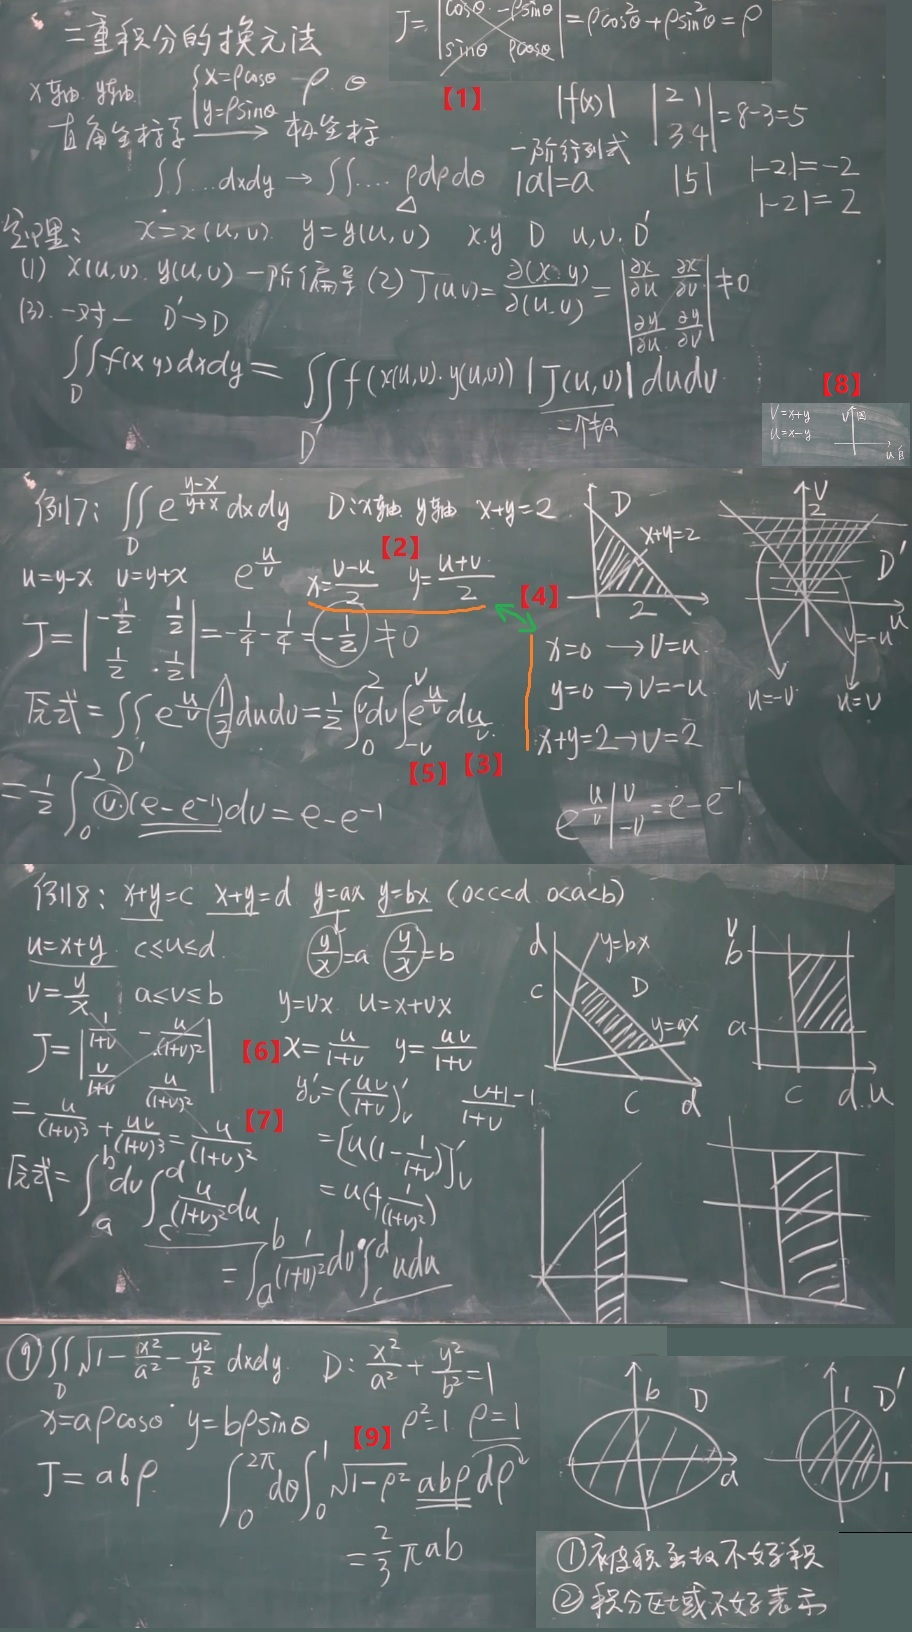 二重积分的换元法
J= |cosθ -ρsinθ; sinθ ρcosθ| =ρcos²θ+ρsin²θ=ρ
【1】
x轴 y轴 {x=ρcosθ y=ρsinθ ρ θ
直角坐标系 → 极坐标
|f(x)| |2 1; 3 4| =8-3=5
一阶行列式
∬…dxdy → ∬…ρdρdθ
|a|=a |5| |-2|=-2
|-2|=2
定理: x=x(u,v) y=y(u,v) x.y D u,v.D'
(1) x(u,v).y(u,v) 一阶偏导 (2) J(u,v)= ∂(x,y)/∂(u,v) = |∂x/∂u ∂x/∂v; ∂y/∂u ∂y/∂v| ≠0
(3). 一对一 D'→D
∬_D f(x y)dxdy= ∬_D' f(x(u,v).y(u,v)) |J(u,v)| dudv
【8】
V=x+y
u=x-y
V
u
例17: ∬_D e^((y-x)/(y+x)) dxdy D:x轴 y轴 x+y=2
【2】
u=y-x v=y+x e^(u/v) x=(v-u)/2 y=(u+v)/2
【4】
J= |-1/2 1/2; 1/2 1/2| =-1/4-1/4=-1/2≠0
x=0 →V=u
y=0 →V=-u
x+y=2→V=2
原式= ∬_D' e^(u/v) (1/2)dudv= 1/2 ∫_0^2 v dv ∫_-v^v e^(u/v) d u/v
【5】 【3】
= 1/2 ∫_0^2 v.(e-e⁻¹)dv=e-e⁻¹
e^(u/v) |_-v^v =e-e⁻¹
D
x+y=2
2
V
2
D'
u
V=-u
u=-v
u=v
例18: x+y=c x+y=d y=ax y=bx (0<c<d 0<a<b)
u=x+y c≤u≤d y/x=a y/x=b
v=y/x a≤v≤b y=vx u=x+vx
J= |1/(1+v) -u/(1+v)²; v/(1+v) u/(1+v)²|
【6】x=u/(1+v) y=uv/(1+v)
y'v=(uv/(1+v))'v (v+1-1)/(1+v)
= u/(1+v)³ + uv/(1+v)³ = u/(1+v)²
【7】
=[u(1-1/(1+v))]'v
=u(+1/(1+v)²)
原式= ∫_a^b dv ∫_c^d u/(1+v)² du
= ∫_a^b 1/(1+v)² dv·∫_c^d udu
d
c
y=bx
D
y=ax
c d
v
b
a
c d u
⑨ ∬_D √(1-x²/a²-y²/b²) dxdy D: x²/a²+y²/b²=1
x=aρcosθ y=bρsinθ 【9】 ρ²=1 ρ=1
J=abρ ∫_0^2π dθ ∫_0^1 √(1-ρ²) abρ dρ
= 2/3 πab
b
D
a
1
D'
1
①被积函数不好积
②积分区域不好表示